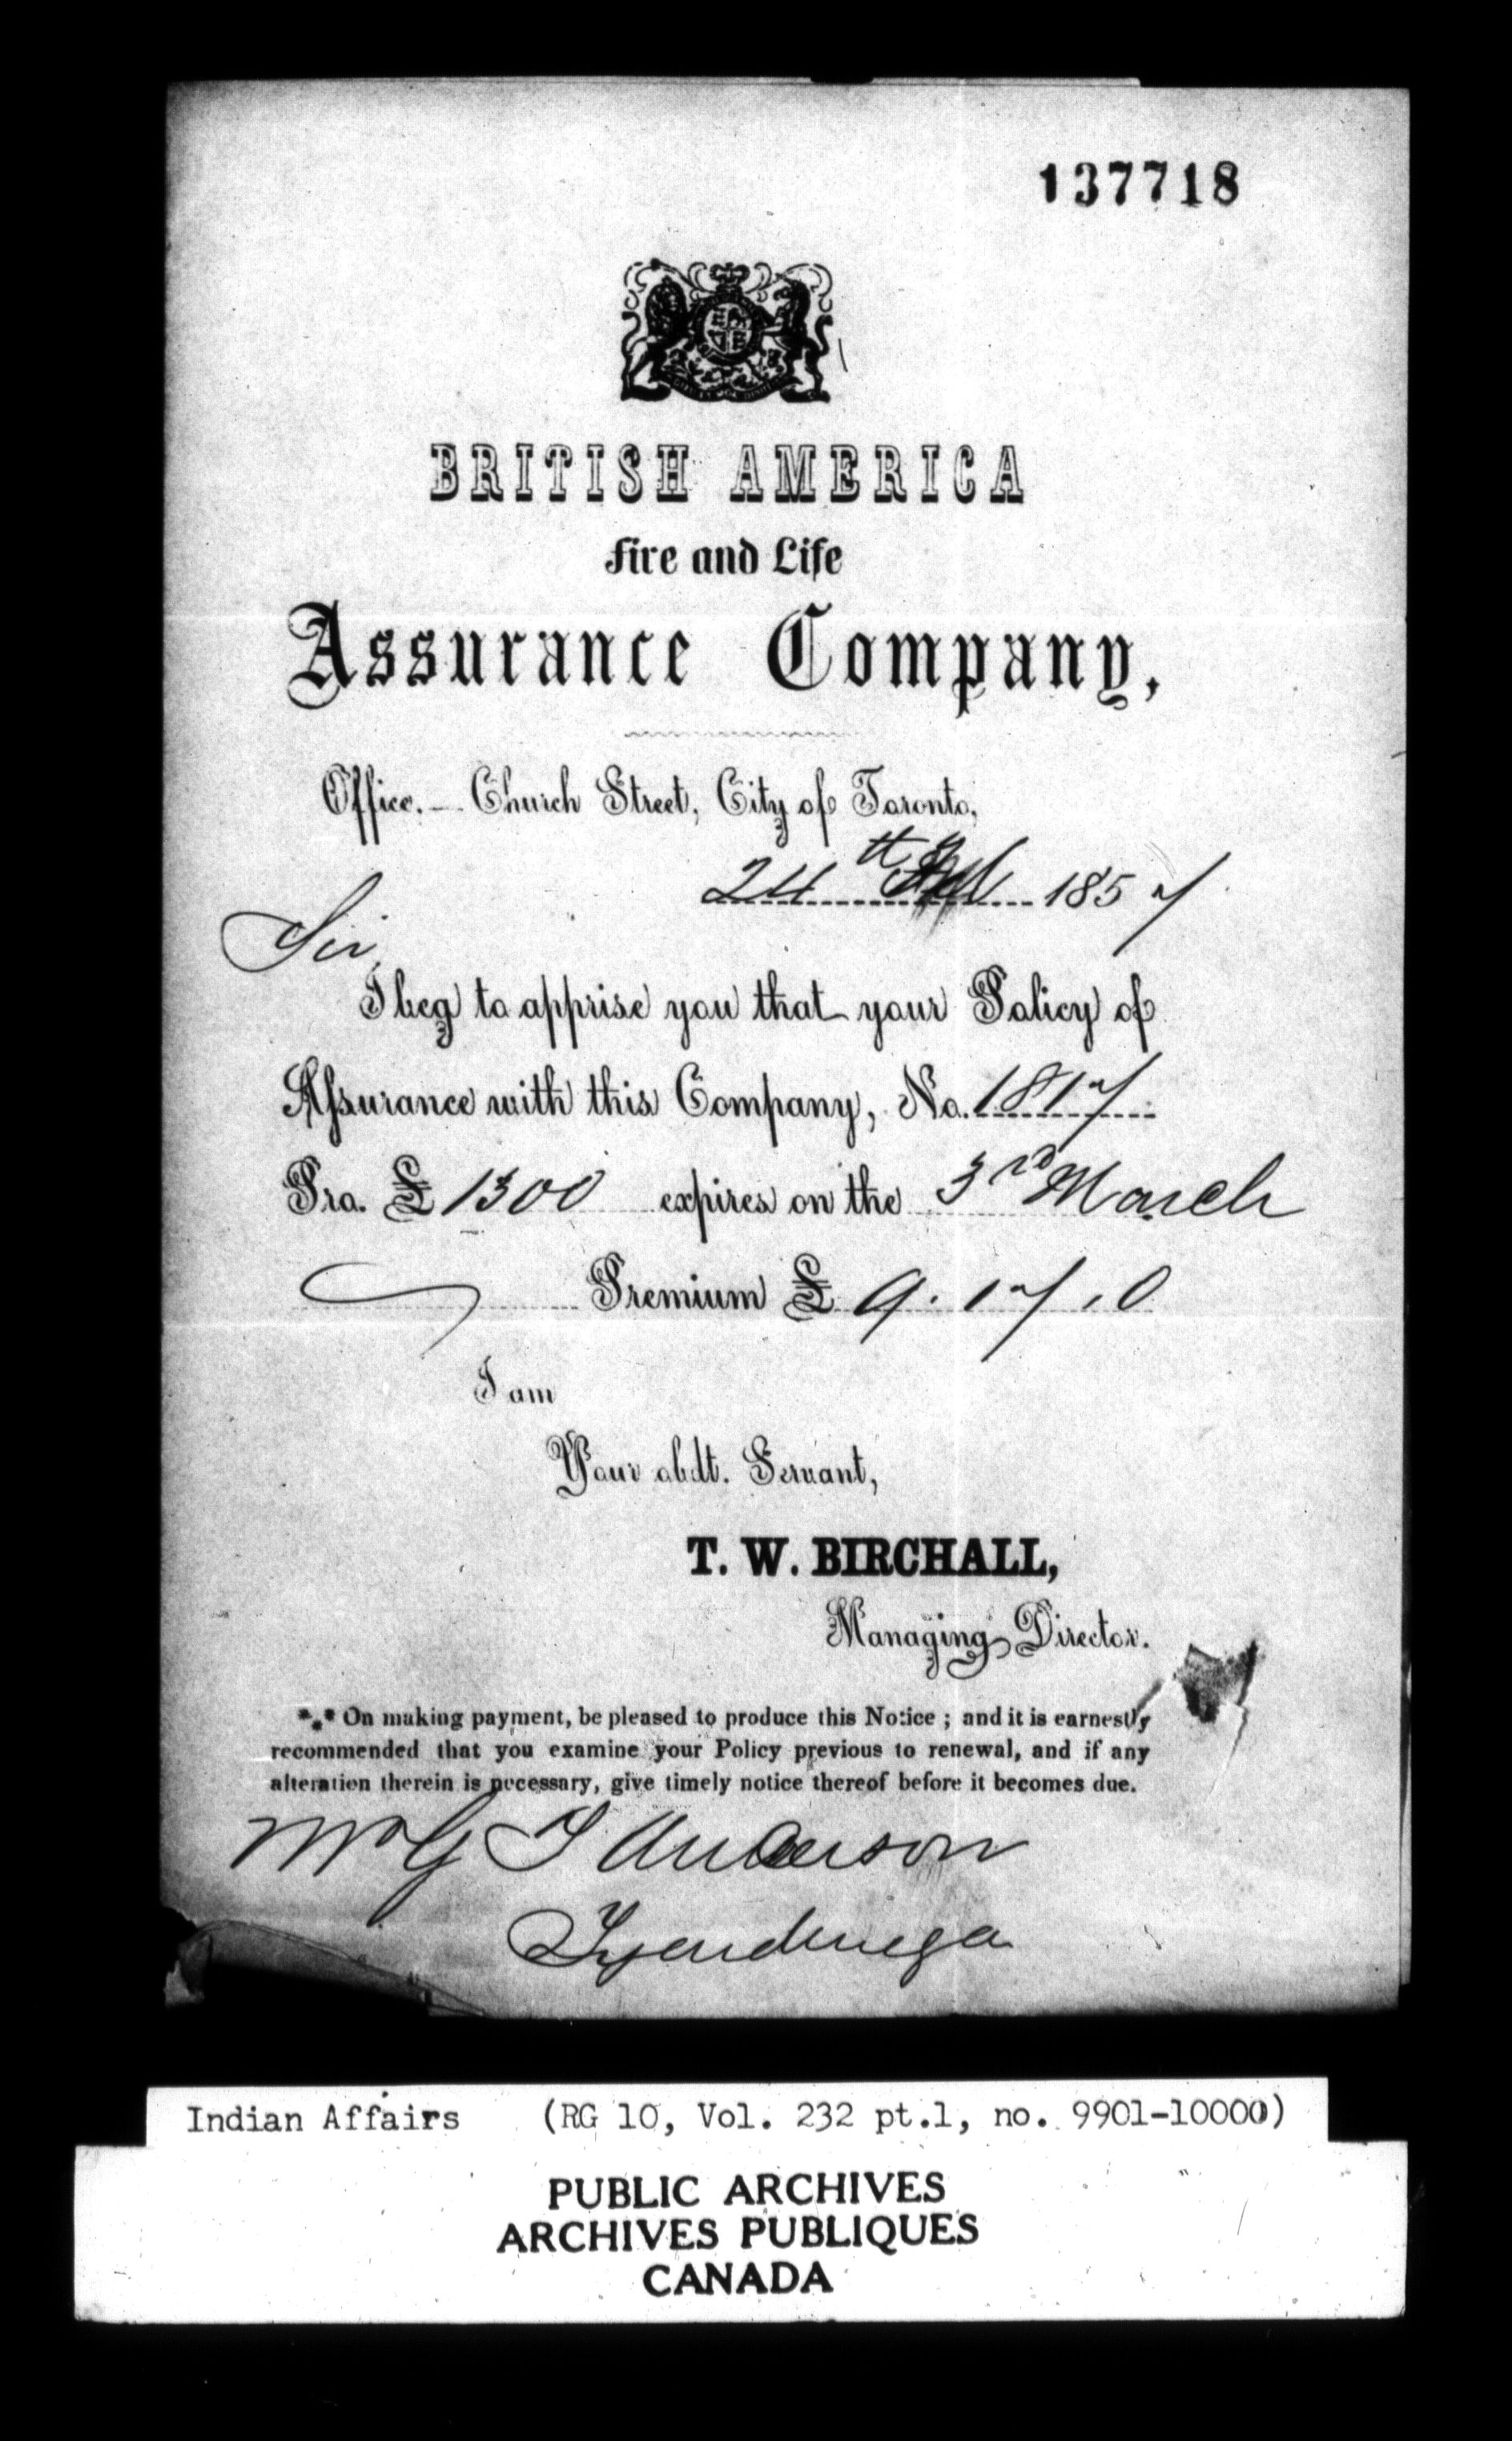 137718
BRITISH AMERICA
Fire and Life
Assurance Company,
Office.— Church Street, City of Toronto,
24th Feb 1857
Sir,
I beg to apprise you that your Policy of
Assurance with this Company, No. 1817
Pro. £ 1300 expires on the 3rd March
Premium £ 9. 17 . 0
I am
Your obdt. Servant,
T. W. BIRCHALL,
Managing Director.
*⁎* On making payment, be pleased to produce this Notice ; and it is earnestly
recommended that you examine your Policy previous to renewal, and if any
alteration therein is necessary, give timely notice thereof before it becomes due.
Mr G I Anderson
Tyendinega
Indian Affairs (RG 10, Vol. 232 pt.1, no. 9901-10000)
PUBLIC ARCHIVES
ARCHIVES PUBLIQUES
CANADA